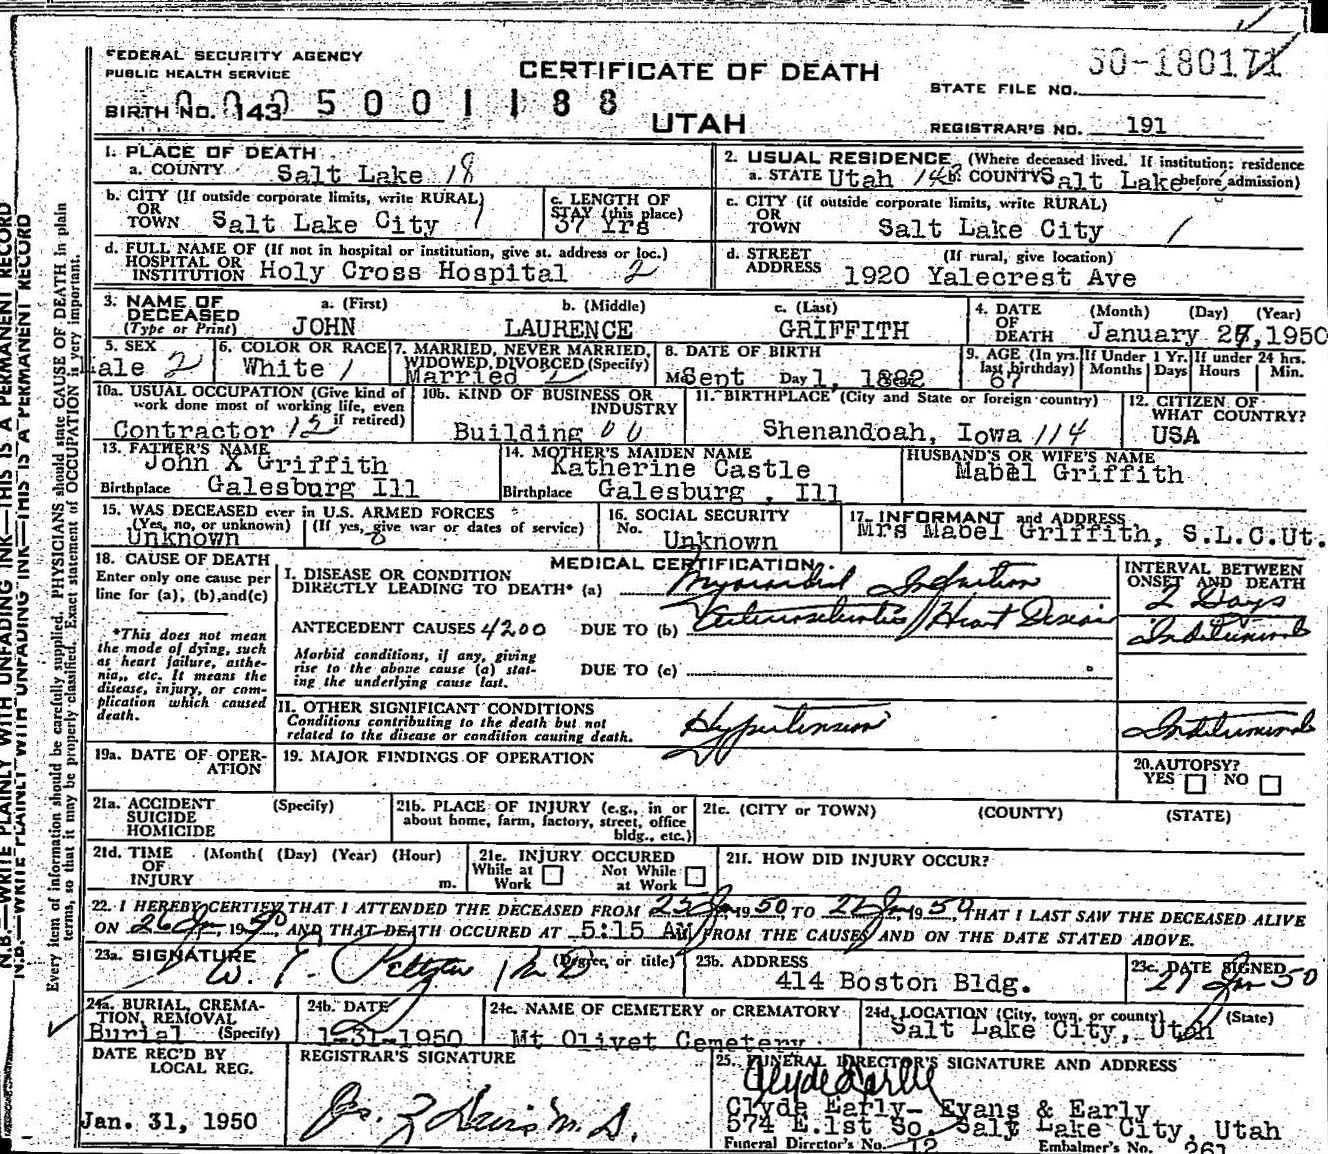 FEDERAL SECURITY AGENCY
PUBLIC HEALTH SERVICE
CERTIFICATE OF DEATH
UTAH
STATE FILE NO. 50-180171
BIRTH NO. 143 5 0 0 1 1 8 8
REGISTRAR'S NO. 191
1. PLACE OF DEATH
a. COUNTY Salt Lake 18
2. USUAL RESIDENCE (Where deceased lived. If institution: residence before admission)
a. STATE Utah b. COUNTY Salt Lake
b. CITY (If outside corporate limits, write RURAL)
OR
TOWN Salt Lake City 1
c. LENGTH OF
STAY (this place)
37 Yrs
c. CITY (if outside corporate limits, write RURAL)
OR
TOWN Salt Lake City 1
d. FULL NAME OF (If not in hospital or institution, give st. address or loc.)
HOSPITAL OR
INSTITUTION Holy Cross Hospital 2
d. STREET (If rural, give location)
ADDRESS 1920 Yalecrest Ave
3. NAME OF DECEASED (Type or Print)
a. (First) b. (Middle) c. (Last)
JOHN LAURENCE GRIFFITH
4. DATE OF DEATH
(Month) (Day) (Year)
January 27, 1950
5. SEX
ale 2
6. COLOR OR RACE
White 1
7. MARRIED, NEVER MARRIED,
WIDOWED, DIVORCED (Specify)
Married 2
8. DATE OF BIRTH
Mo Sept Day 1, 1882
9. AGE (In yrs. last birthday)
67
If Under 1 Yr. Months Days
If under 24 hrs. Hours Min.
10a. USUAL OCCUPATION (Give kind of
work done most of working life, even
if retired)
Contractor 15
10b. KIND OF BUSINESS OR
INDUSTRY
Building 00
11. BIRTHPLACE (City and State or foreign country)
Shenandoah, Iowa 114
12. CITIZEN OF
WHAT COUNTRY?
USA
13. FATHER'S NAME
John X Griffith
Birthplace Galesburg Ill
14. MOTHER'S MAIDEN NAME
Katherine Castle
Birthplace Galesburg , Ill
HUSBAND'S OR WIFE'S NAME
Mabel Griffith
15. WAS DECEASED ever in U.S. ARMED FORCES
(Yes, no, or unknown) (If yes, give war or dates of service)
Unknown
16. SOCIAL SECURITY
No.
Unknown
17. INFORMANT and ADDRESS
Mrs Mabel Griffith, S.L.C.Ut.
18. CAUSE OF DEATH
Enter only one cause per
line for (a), (b), and (c)
*This does not mean
the mode of dying, such
as heart failure, asthe-
nia,, etc. It means the
disease, injury, or com-
plication which caused
death.
MEDICAL CERTIFICATION
I. DISEASE OR CONDITION
DIRECTLY LEADING TO DEATH* (a) Myocardial Infarction
ANTECEDENT CAUSES 4200 DUE TO (b) Heart Disease
Morbid conditions, if any, giving
rise to the above cause (a) stat-
ing the underlying cause last.
DUE TO (c)
II. OTHER SIGNIFICANT CONDITIONS
Conditions contributing to the death but not
related to the disease or condition causing death.
Hypertension
INTERVAL BETWEEN
ONSET AND DEATH
2 Days
19a. DATE OF OPER-
ATION
19. MAJOR FINDINGS OF OPERATION
20. AUTOPSY?
YES NO
21a. ACCIDENT (Specify)
SUICIDE
HOMICIDE
21b. PLACE OF INJURY (e.g., in or
about home, farm, factory, street, office
bldg., etc.)
21c. (CITY or TOWN) (COUNTY) (STATE)
21d. TIME (Month( (Day) (Year) (Hour)
OF
INJURY m.
21e. INJURY OCCURED
While at Work Not While at Work
21f. HOW DID INJURY OCCUR?
22. I HEREBY CERTIFY THAT I ATTENDED THE DECEASED FROM 25 Jan, 1950 TO 27 Jan, 1950, THAT I LAST SAW THE DECEASED ALIVE
ON 26 Jan, 1950, AND THAT DEATH OCCURED AT 5:15 AM FROM THE CAUSES AND ON THE DATE STATED ABOVE.
23a. SIGNATURE (Degree, or title)
W. T. M D
23b. ADDRESS
414 Boston Bldg.
23c. DATE SIGNED
27 Jan 50
24a. BURIAL, CREMA-
TION, REMOVAL
Burial (Specify)
24b. DATE
1-31-1950
24c. NAME OF CEMETERY or CREMATORY
Mt Olivet Cemetery
24d. LOCATION (City, town, or county) (State)
Salt Lake City, Utah
DATE REC'D BY
LOCAL REG.
Jan. 31, 1950
REGISTRAR'S SIGNATURE
25. FUNERAL DIRECTOR'S SIGNATURE AND ADDRESS
Clyde Early
Clyde Early- Evans & Early
574 E.1st So. Salt Lake City, Utah
Funeral Director's No. 12 Embalmer's No. 261
N.B.—WRITE PLAINLY WITH UNFADING INK—THIS IS A PERMANENT RECORD
N.B.—WRITE PLAINLY WITH UNFADING INK—THIS IS A PERMANENT RECORD
Every item of information should be carefully supplied. PHYSICIANS should state CAUSE OF DEATH in plain
terms, so that it may be properly classified. Exact statement of OCCUPATION is very important.